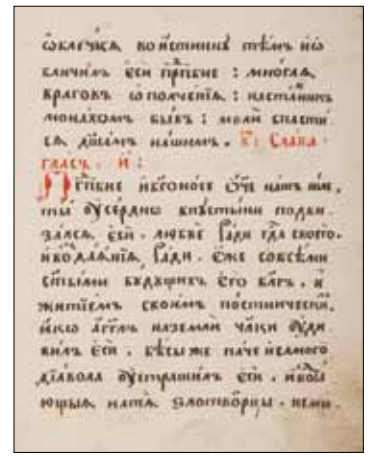 ѡблегчисѧ воистиннꙋ тѣмъ и ѡ
бличилъ єси прпбне : многаѧ,
враговъ ѡполченїѧ : наставникъ
монахомъ бывъ : моли спасти
сѧ дш҃амъ нашимъ . Слава
гласъ . и҃ :
Прпбне и бг҃оносе ѻ҃че нашъ
ты ᲂусердно впꙋстыни подви
залсѧ, єси . любве ради гд҃а своего.
и воздаѧнїѧ, ради . єже совсѣми
ст҃ыми бꙋдꙋщихъ єго благъ . и
житїемъ своимъ постнически,
ꙗко аг҃глъ наземли ᲂуди
вилъ єси . бѣсы же паче исамого
дїавола ᲂустрашилъ єси .
ющыѧ натѧ ѕлотворцы .